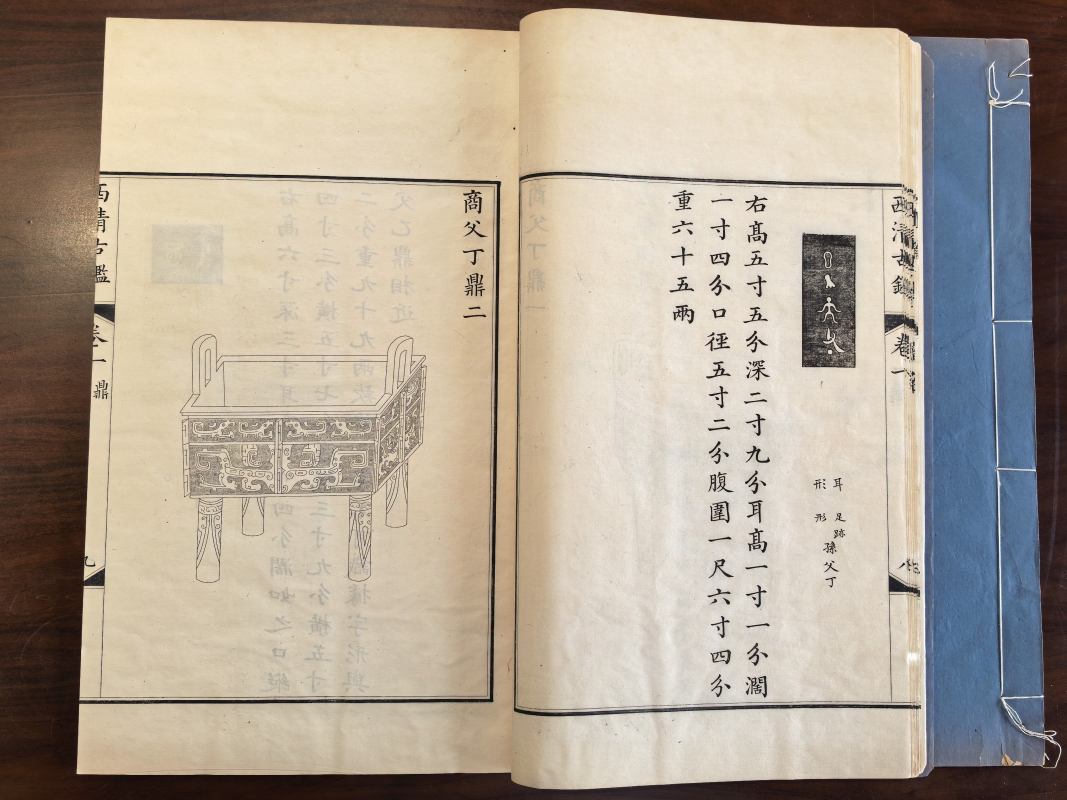 西清古鑑 卷一
耳形 足跡形 孫父丁
右髙五寸五分深二寸九分耳髙一寸一分濶
一寸四分口徑五寸二分腹圍一尺六寸四分
重六十五兩
商父丁鼎二
西清古鑑 卷一 鼎 九